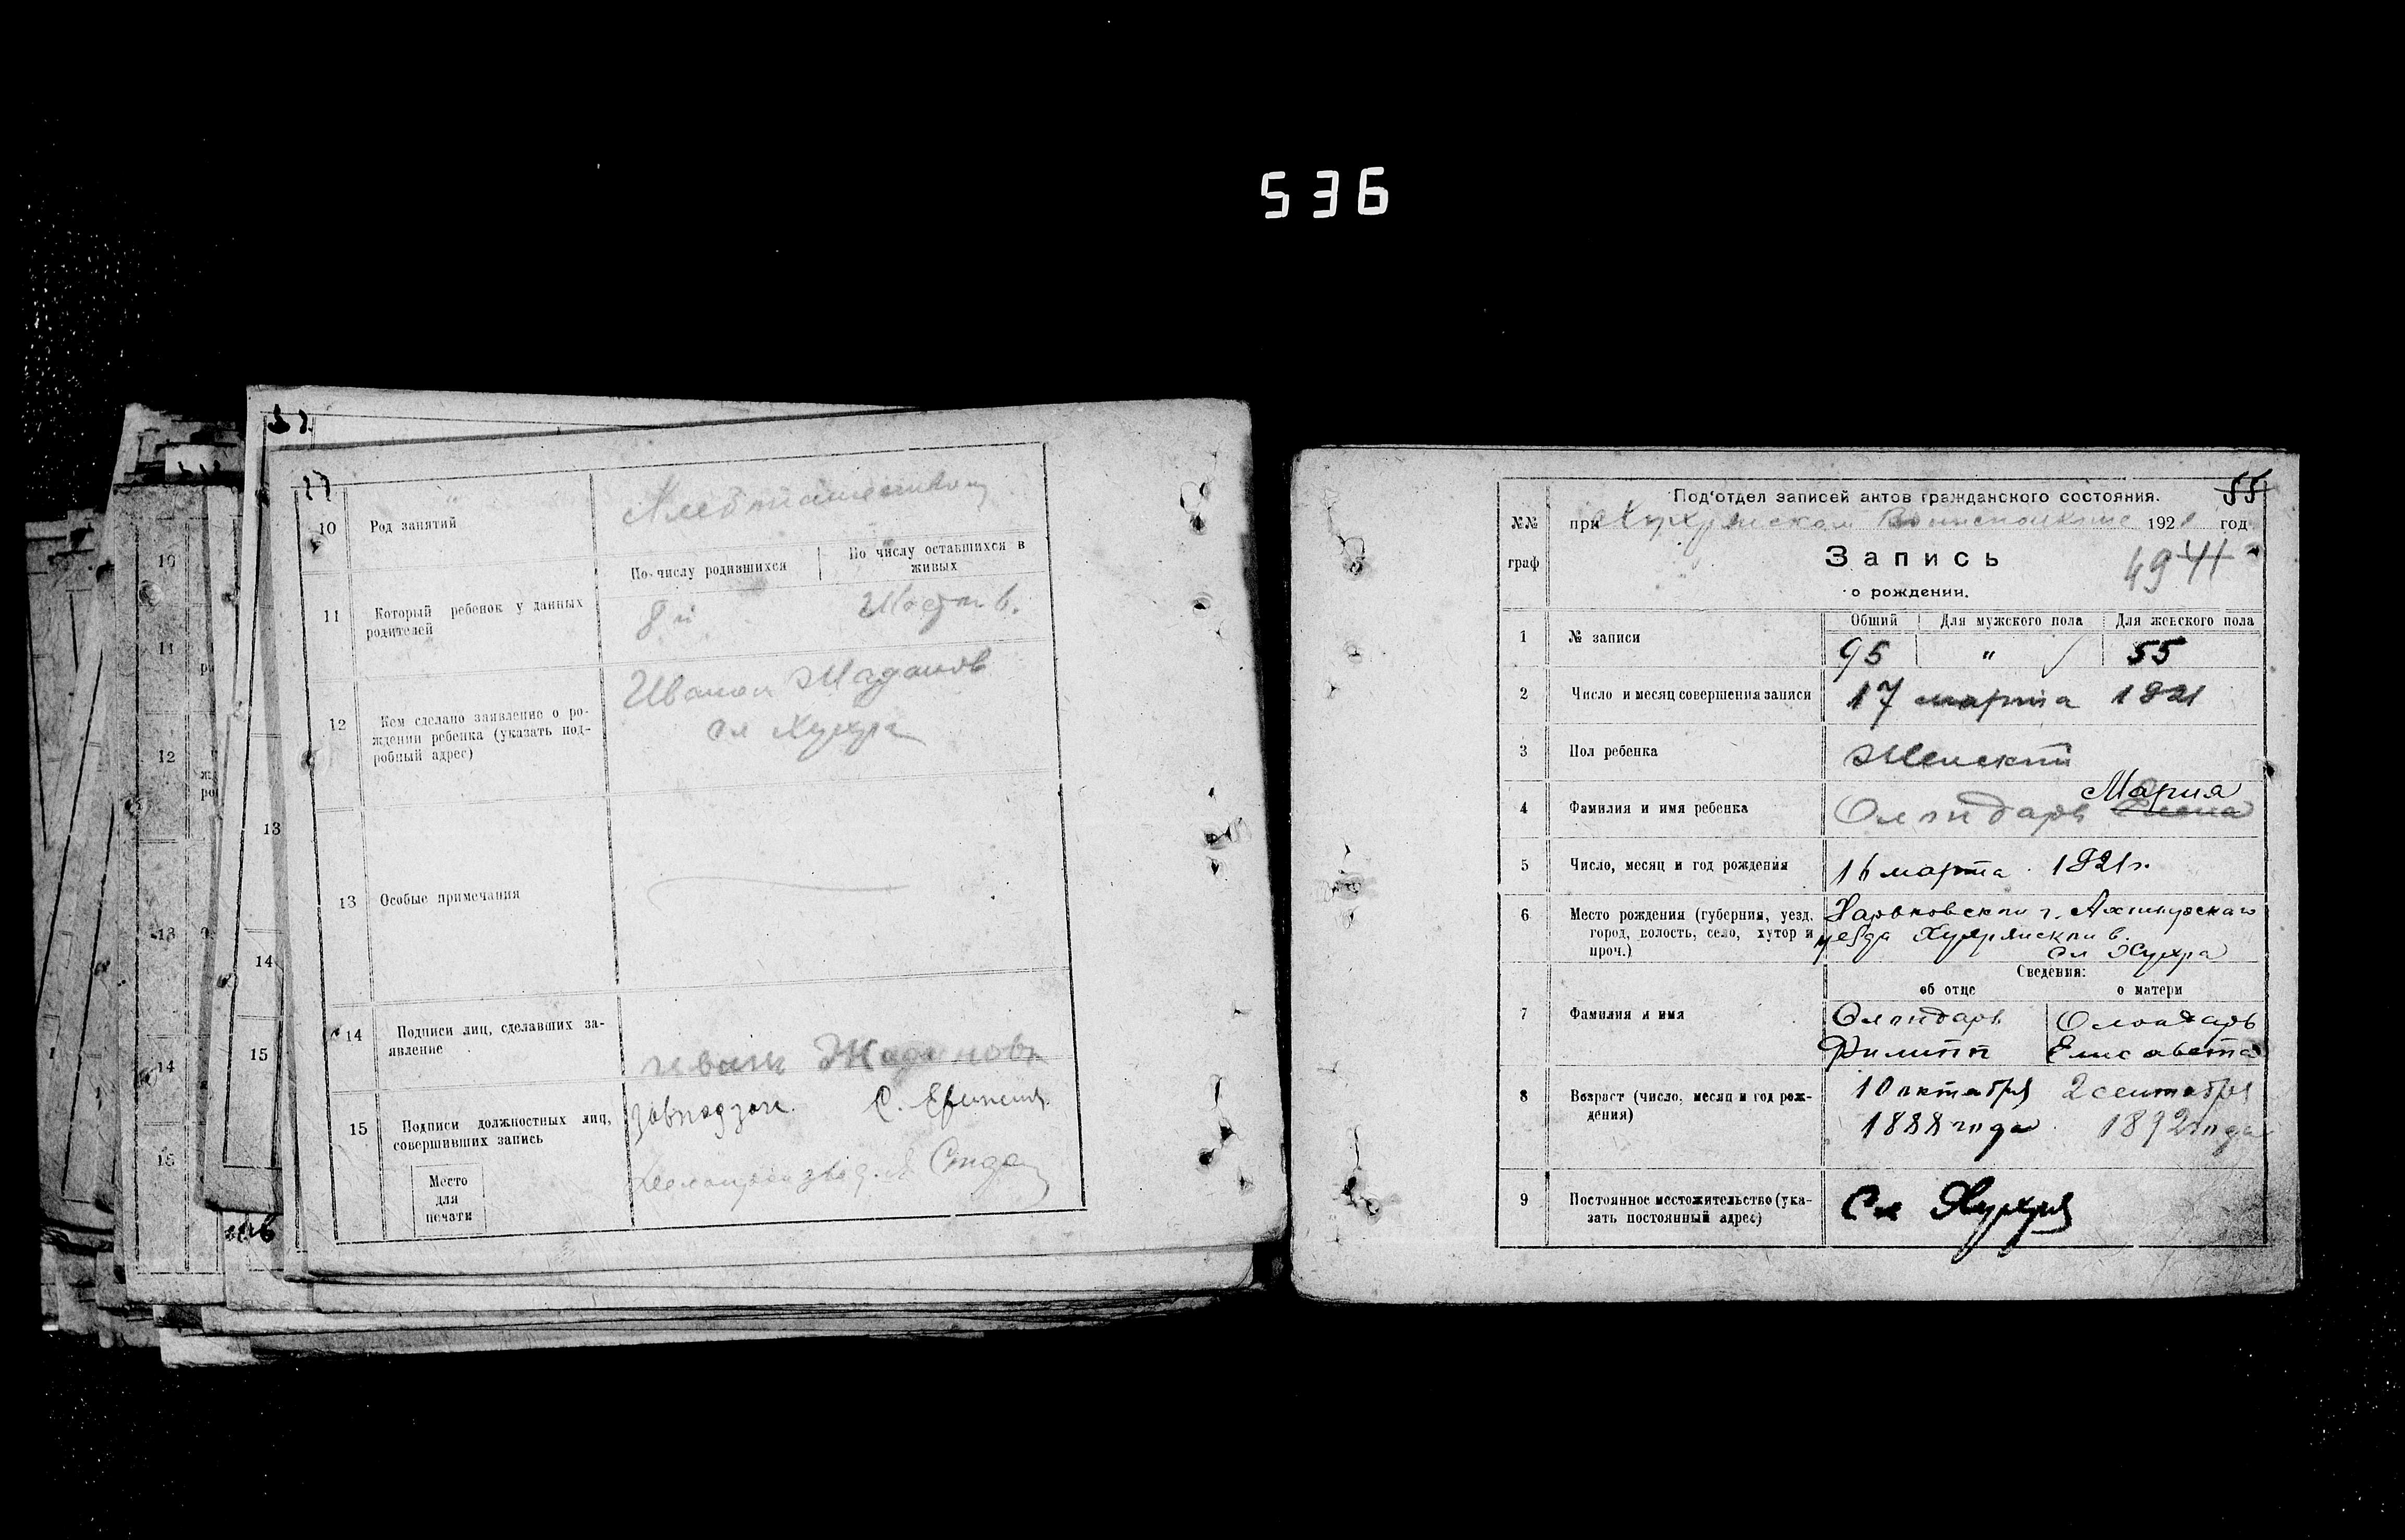 536
10
Род занятий
Хлебопашеством
По числу родившихся
По числу оставшихся в живых
11
Который ребенок у данных
родителей
8й
12
Кем сделано заявление о ро-
ждении ребенка (указать под-
робный адрес)
Иваном Жадановъ
сл Хухра
13
Особые примечания
14
Подписи лиц, сделавших за-
явление
Иванъ Жадановъ
15
Подписи должностных лиц,
совершивших запись
Завподзаг.
Место
для
печати
10
11
12
13
14
15
13
14
15
55
Под'отдел записей актов гражданского состояния.
№№
граф
при Хухрянском Волисполкоме 1921 год
Запись
о рождении.
4941
1
№ записи
Общий
Для мужского пола
Для женского пола
95
"
55
2
Число и месяц совершения записи
17 марта 1921
3
Пол ребенка
Женский
4
Фамилия и имя ребенка
Мария
Олондарь Елена
5
Число, месяц и год рождения
16 марта 1921 г.
6
Место рождения (губерния, уезд,
город, волость, село, хутор и
проч.)
Харьковской г. Ахтырскаго
уезда Хухрянской в.
сл Хухра
Сведения:
об отце
о матери
7
Фамилия и имя
Олондарь
Филипп
Олондарь
Елисавета
8
Возраст (число, месяц и год рож-
дения)
10 октября
1888 года
2 сентября
1892 года
9
Постоянное местожительство (ука-
зать постоянный адрес)
Сл Хухря